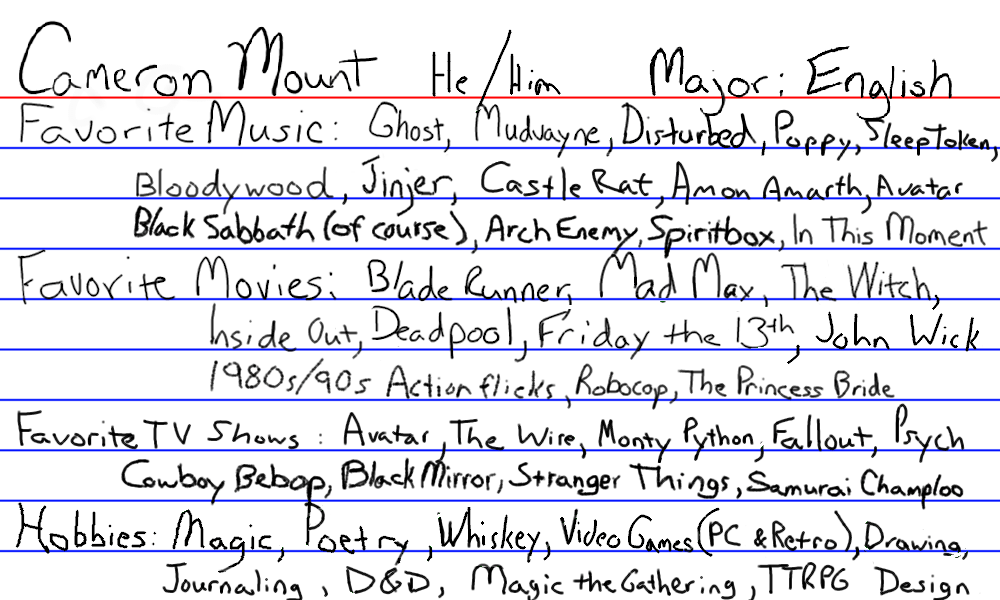 Cameron Mount He/Him Major: English
Favorite Music: Ghost, Mudvayne, Disturbed, Poppy, Sleep Token,
Bloodywood, Jinjer, Castle Rat, Amon Amarth, Avatar
Black Sabbath (of course), Arch Enemy, Spiritbox, In This Moment
Favorite Movies: Blade Runner, Mad Max, The Witch,
Inside Out, Deadpool, Friday the 13th, John Wick
1980s/90s Action flicks, Robocop, The Princess Bride
Favorite TV Shows: Avatar, The Wire, Monty Python, Fallout, Psych
Cowboy Bebop, Black Mirror, Stranger Things, Samurai Champloo
Hobbies: Magic, Poetry, Whiskey, Video Games (PC & Retro), Drawing,
Journaling, D&D, Magic the Gathering, TTRPG Design